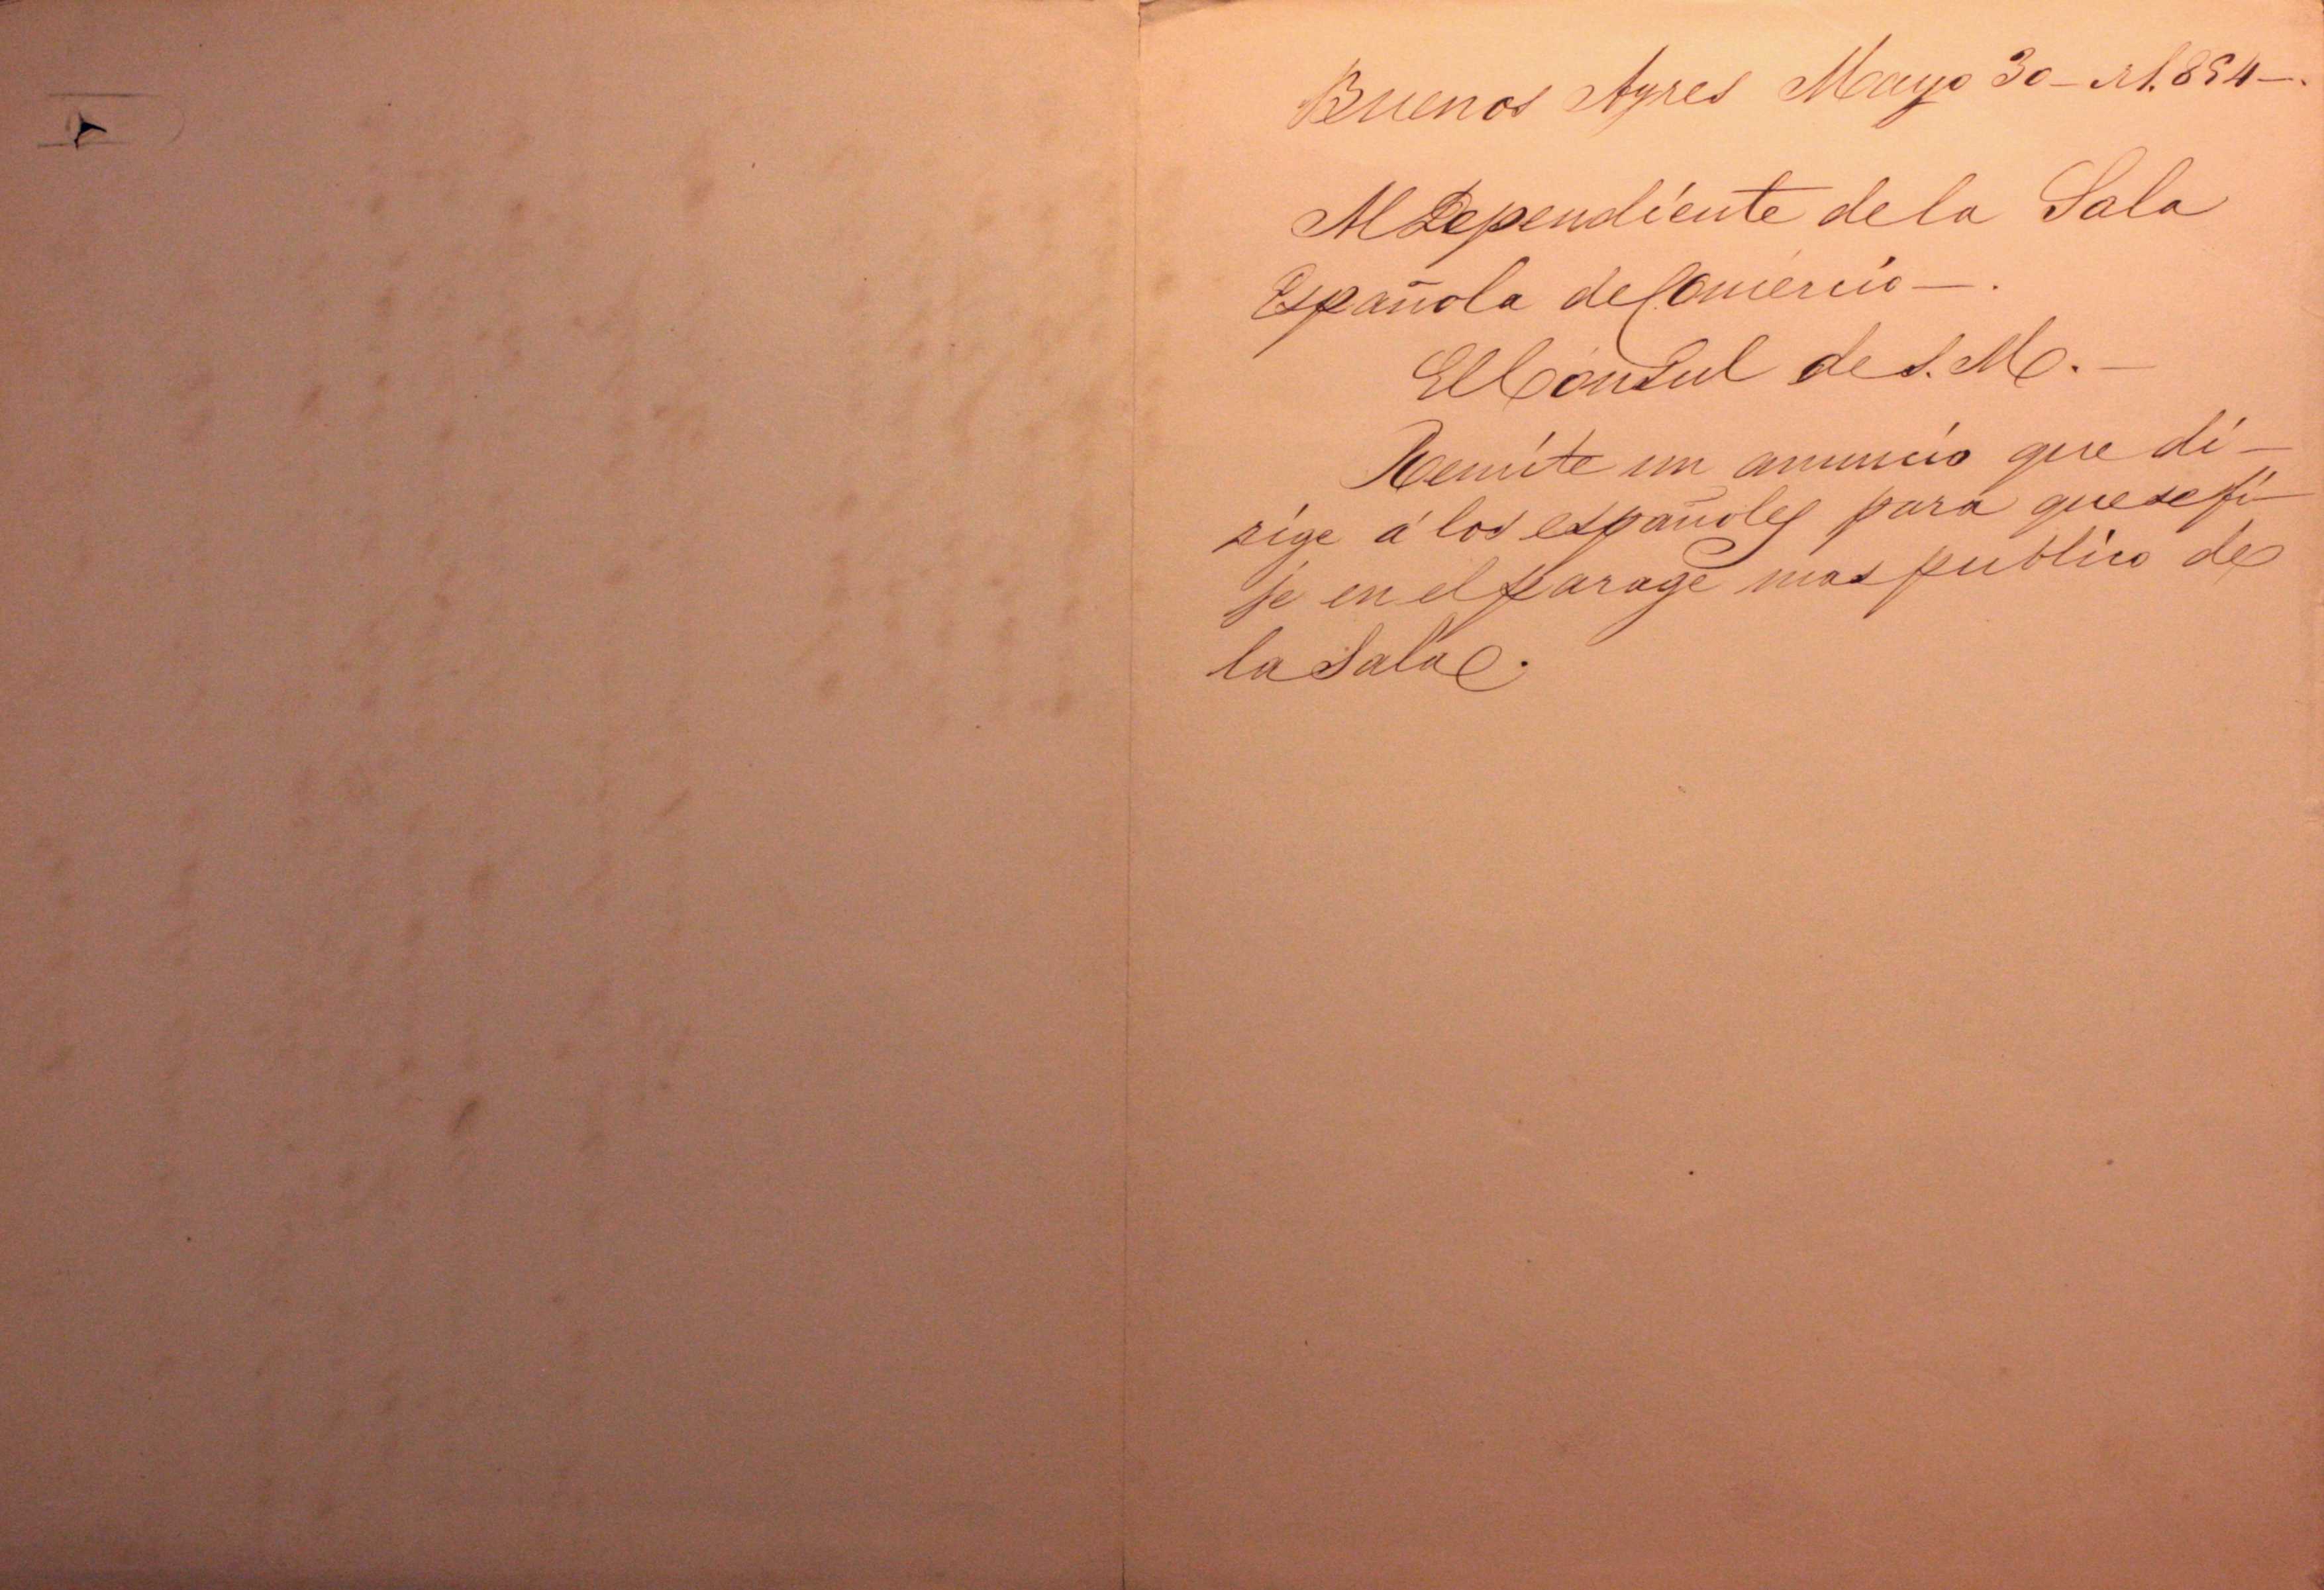 Buenos Ayres Mayo 30 - 1.854 -.
Al Dependiente de la Sala
Española de Comercio -.
El Cónsul de S. M. -
Remite un anuncio que di-
rige á los españoles para que se fi-
je en el parage mas publico de
la Sala.